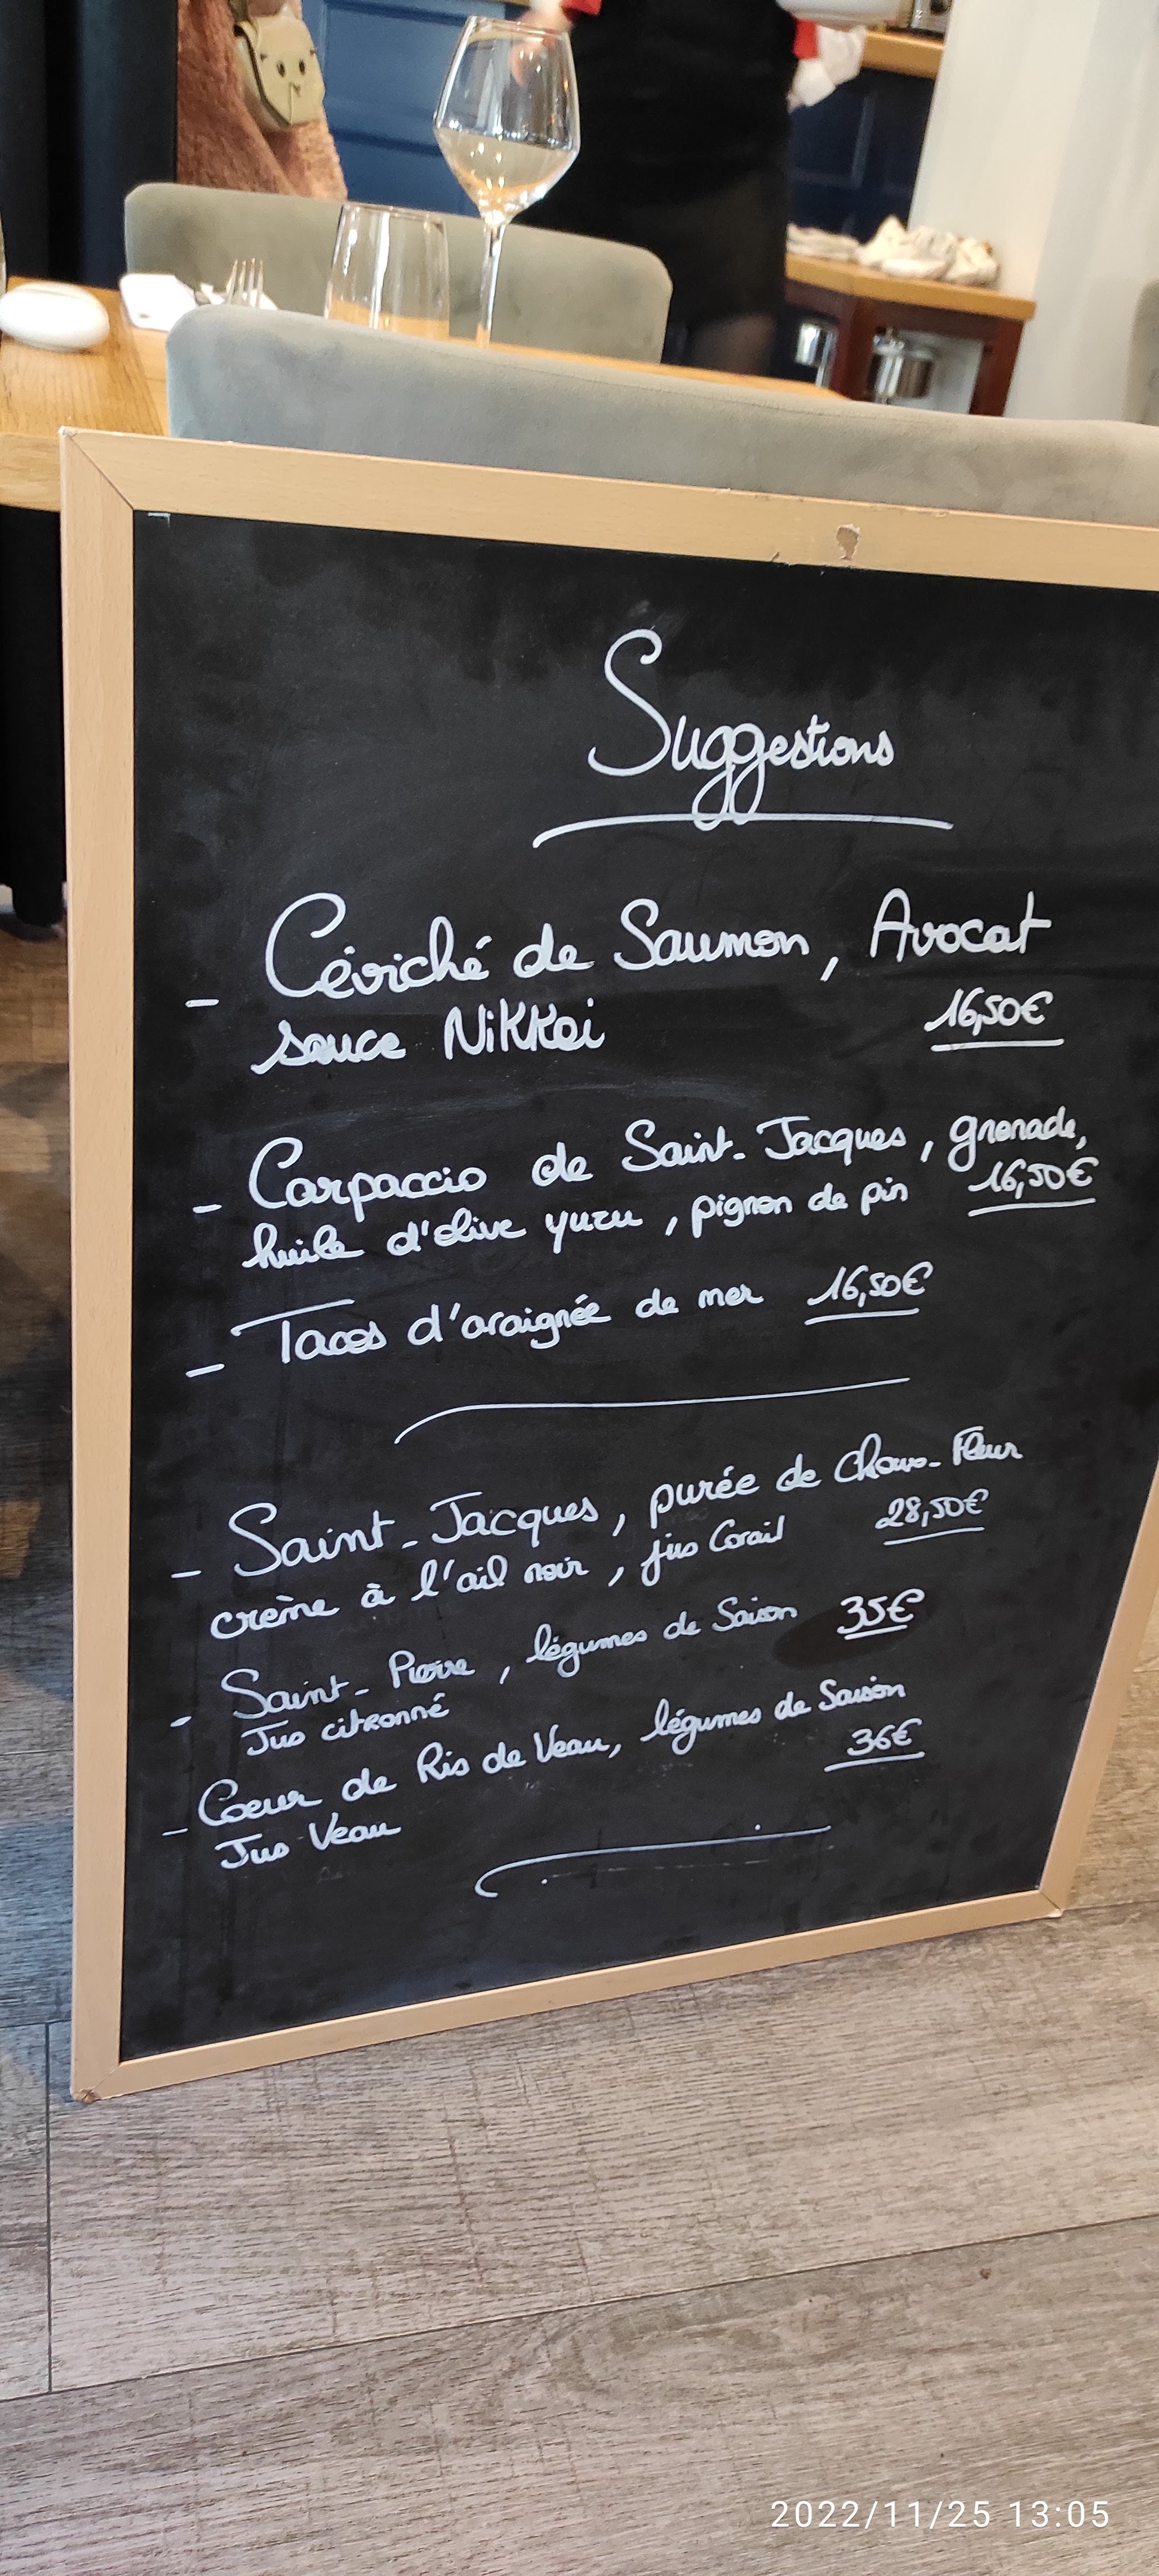 Suggestions
- Céviché de Saumon, Avocat
sauce Nikkei 16,50€
- Carpaccio de Saint-Jacques, grenade,
huile d'olive yuzu, pignon de pin 16,50€
- Tacos d'araignée de mer 16,50€
- Saint-Jacques, purée de Chou-Fleur
crème à l'ail noir, jus Corail 28,50€
- Saint-Pierre, légumes de Saison 35€
Jus citronné
- Coeur de Ris de Veau, légumes de Saison
Jus Veau 36€
2022/11/25 13:05